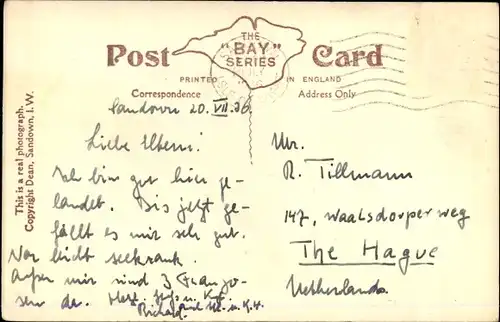 THE
"BAY"
SERIES
Post Card
PRINTED IN ENGLAND
Correspondence Address Only
This is a real photograph.
Copyright Dean, Sandown, I.W.
Sandown 20. VII. 36
Liebe Eltern!
Ich bin gut hier ge-
landet. Bis jetzt ge-
fällt es mir sehr gut.
Nur leicht seekrank.
Außer mir sind 3 Franzo-
sen da. Herzl.
Richard
Mr.
R. Tillmann
147, Waalsdorperweg
The Hague
Netherlands